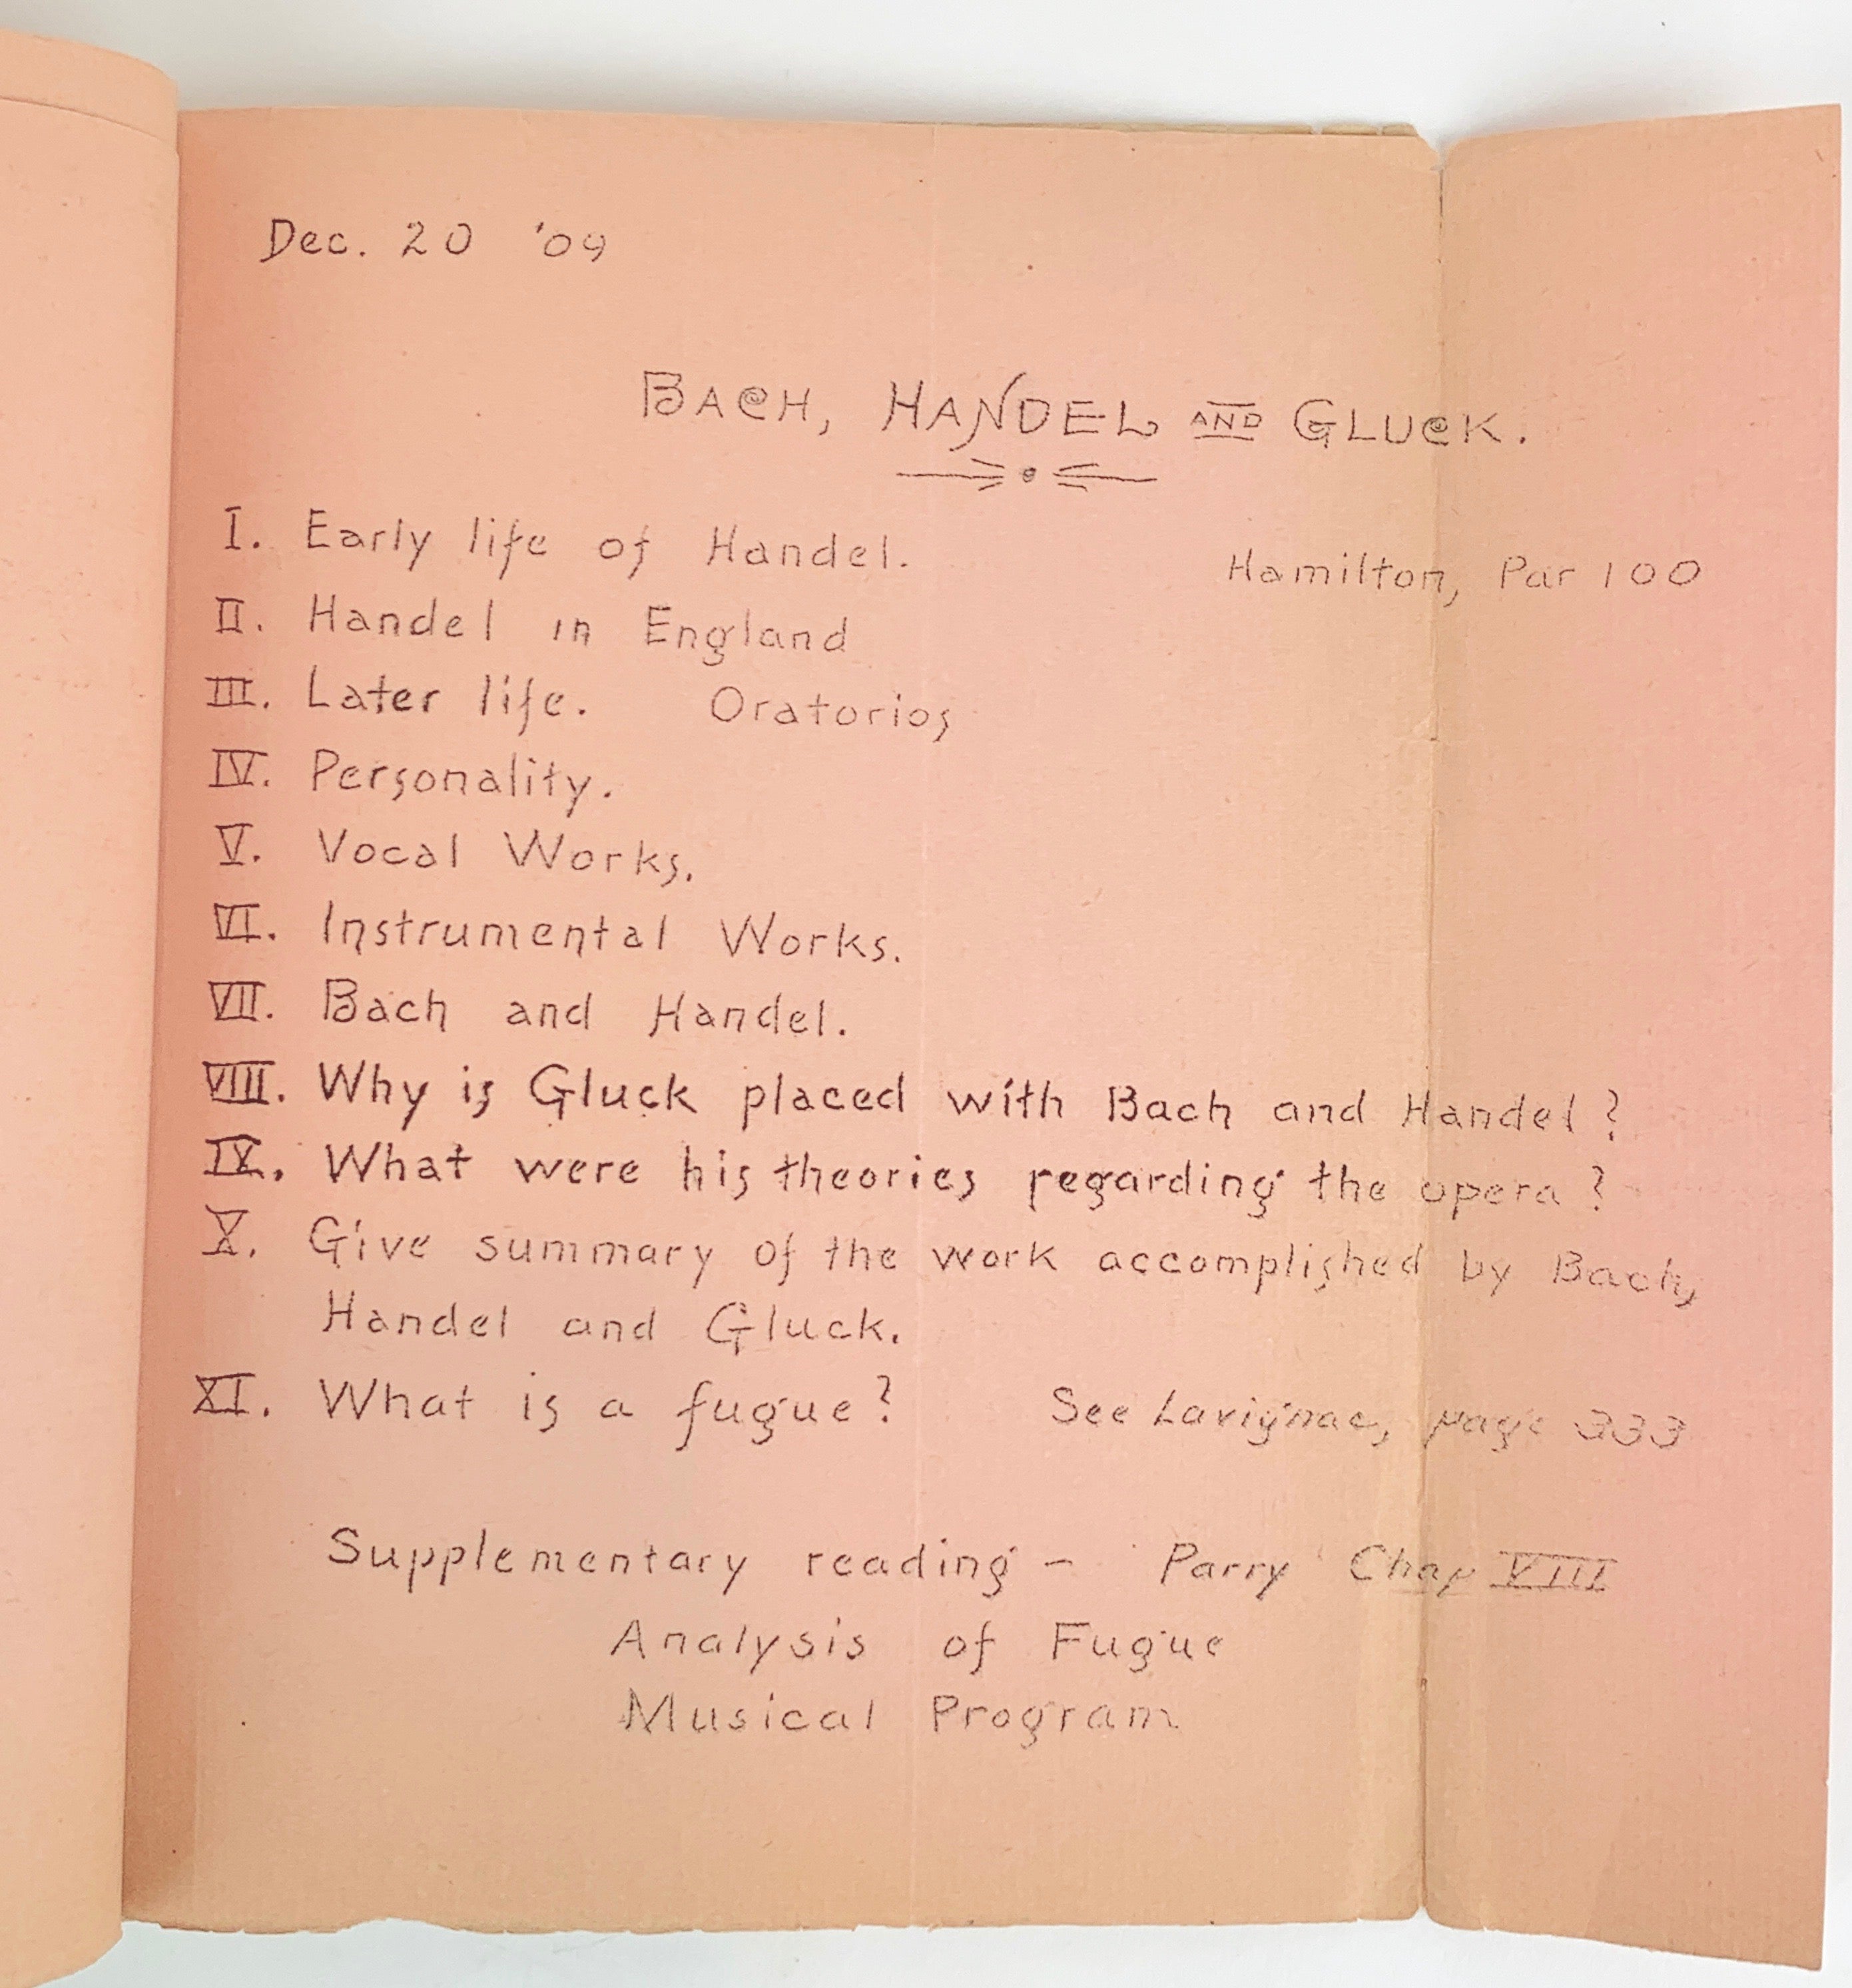 Dec. 20 '09
BACH, HANDEL AND GLUCK.
I. Early life of Handel. Hamilton, Par 100
II. Handel in England
III. Later life. Oratorios
IV. Personality.
V. Vocal Works.
VI. Instrumental Works.
VII. Bach and Handel.
VIII. Why is Gluck placed with Bach and Handel?
IX. What were his theories regarding the opera?
X. Give summary of the work accomplished by Bach,
Handel and Gluck.
XI. What is a fugue? See Lavignac, page 333
Supplementary reading - Parry Chap VIII
Analysis of Fugue
Musical Program